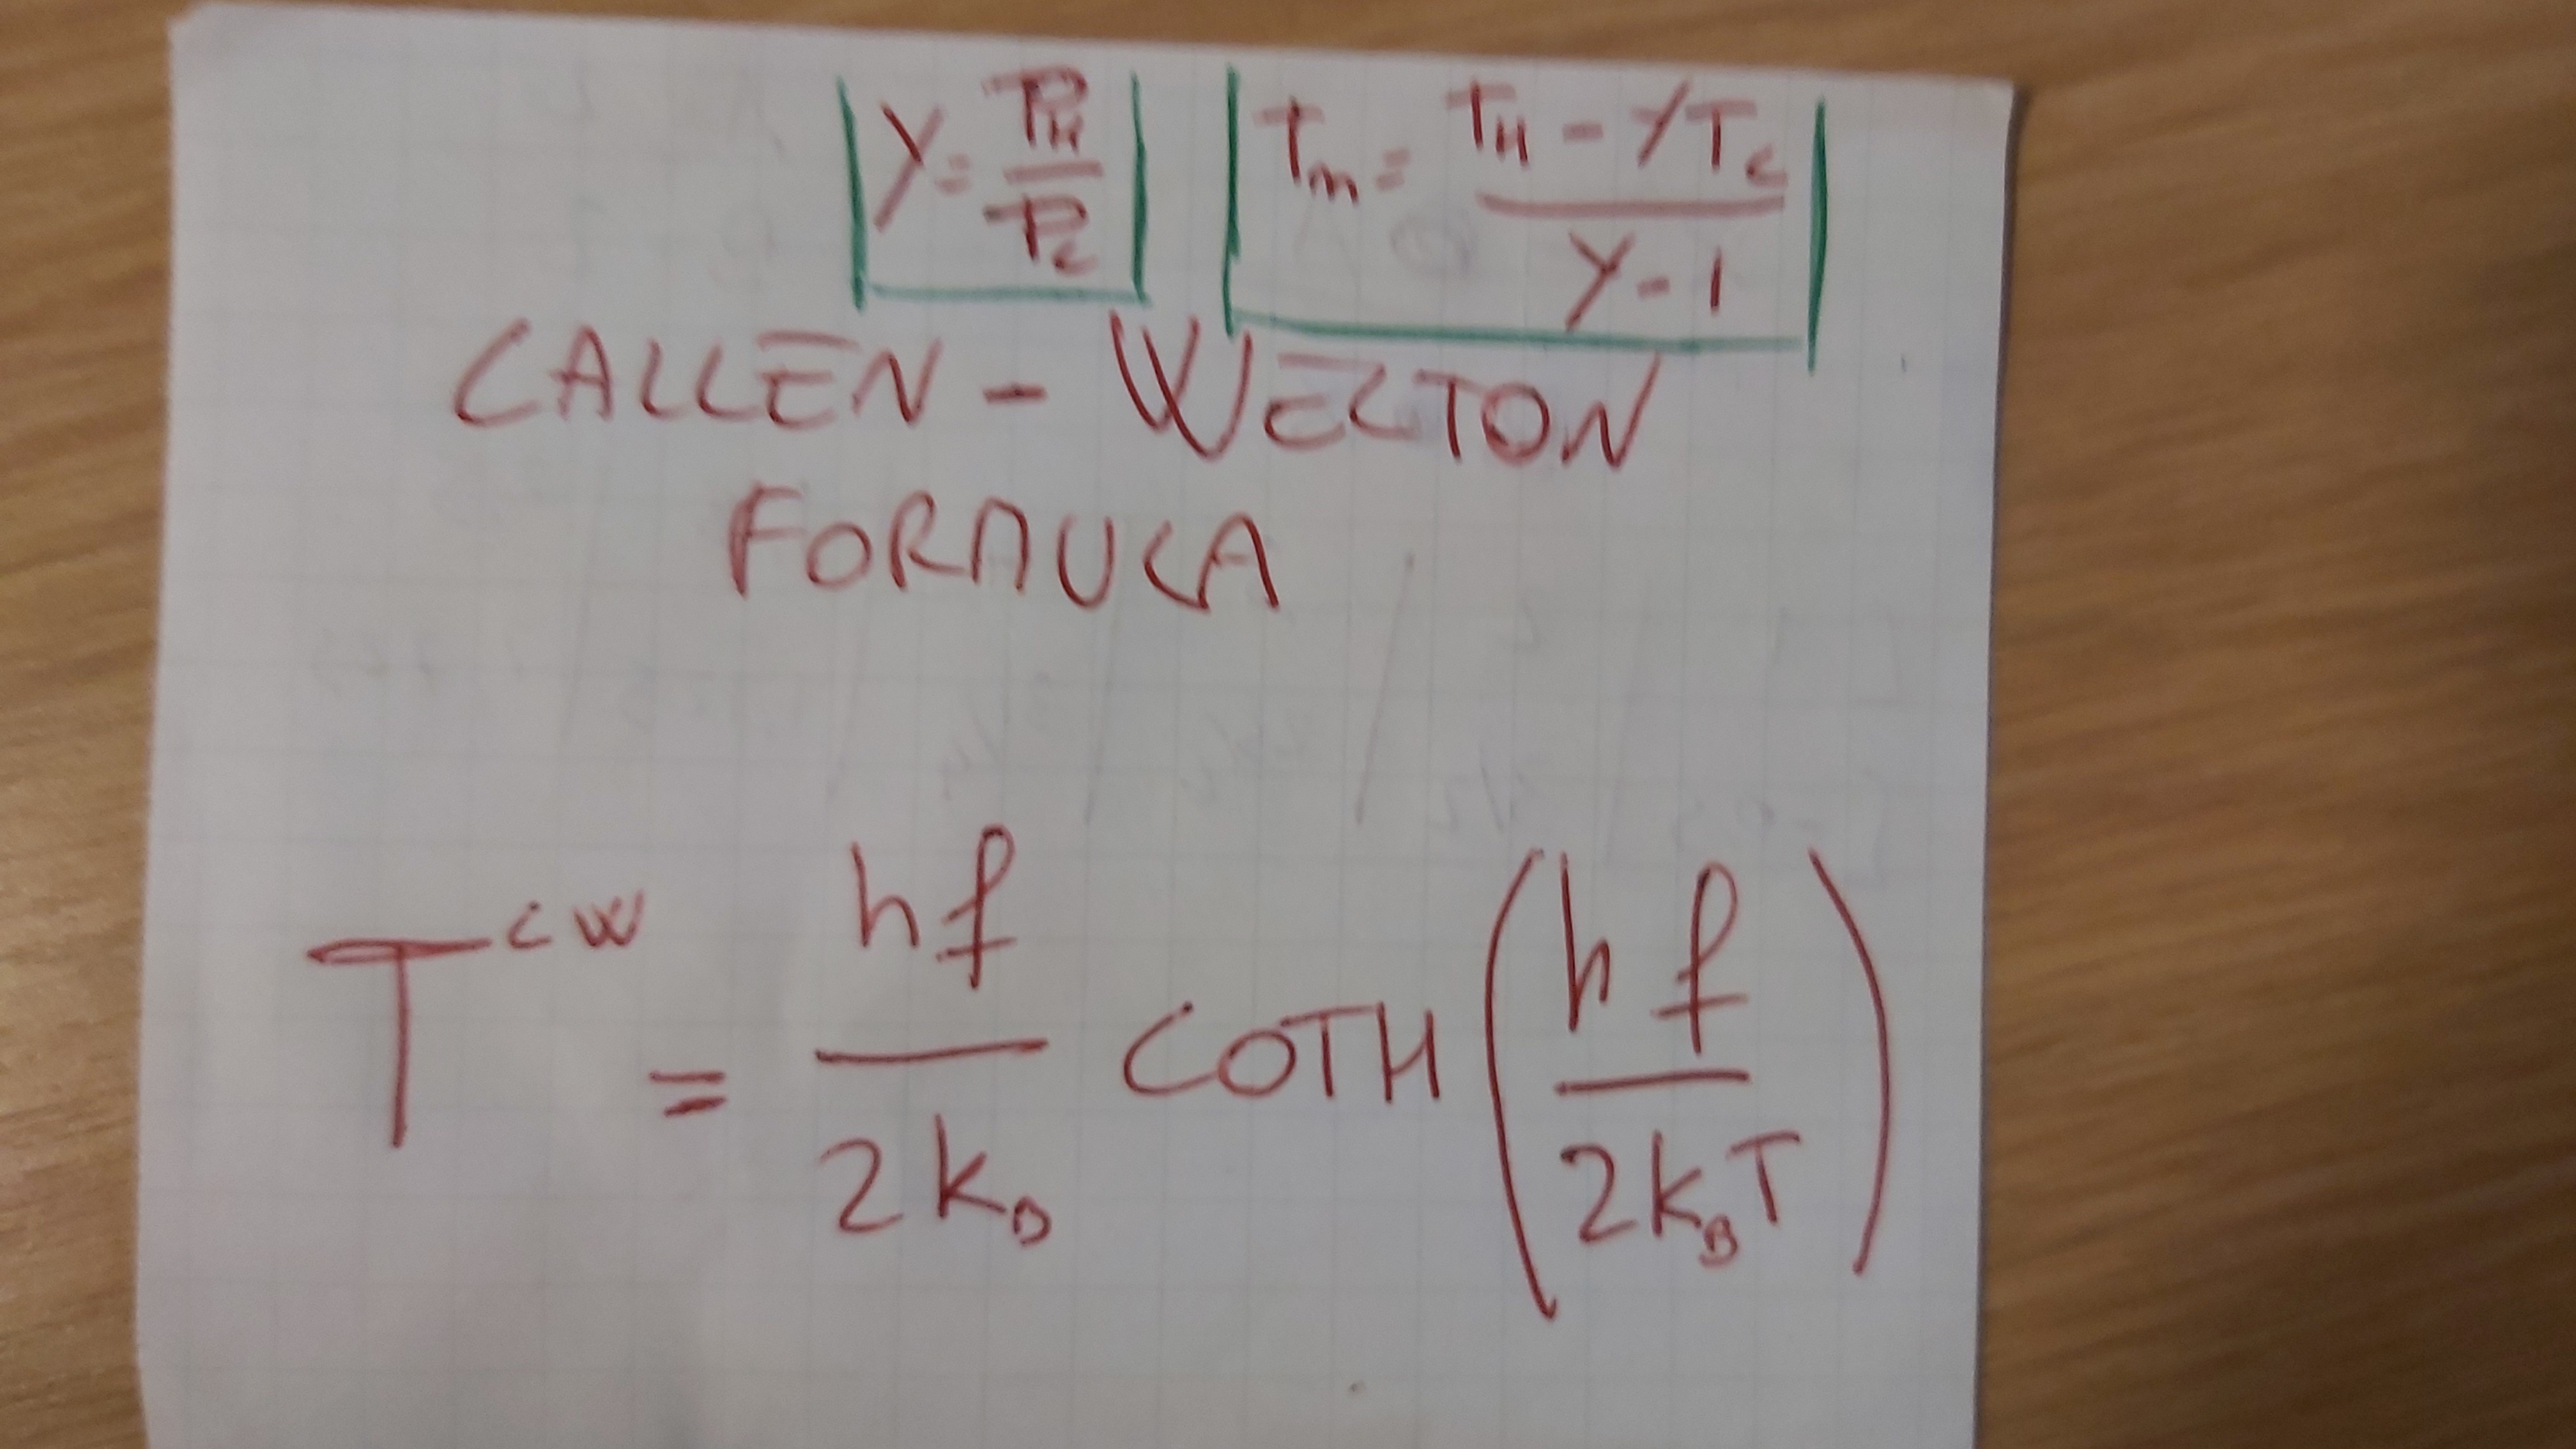 Y = P_H / P_C    T_m = (T_H - Y T_C) / (Y - 1)
CALLEN - WELTON
FORMULA
T^CW = hf / 2k_B COTH (hf / 2k_B T)